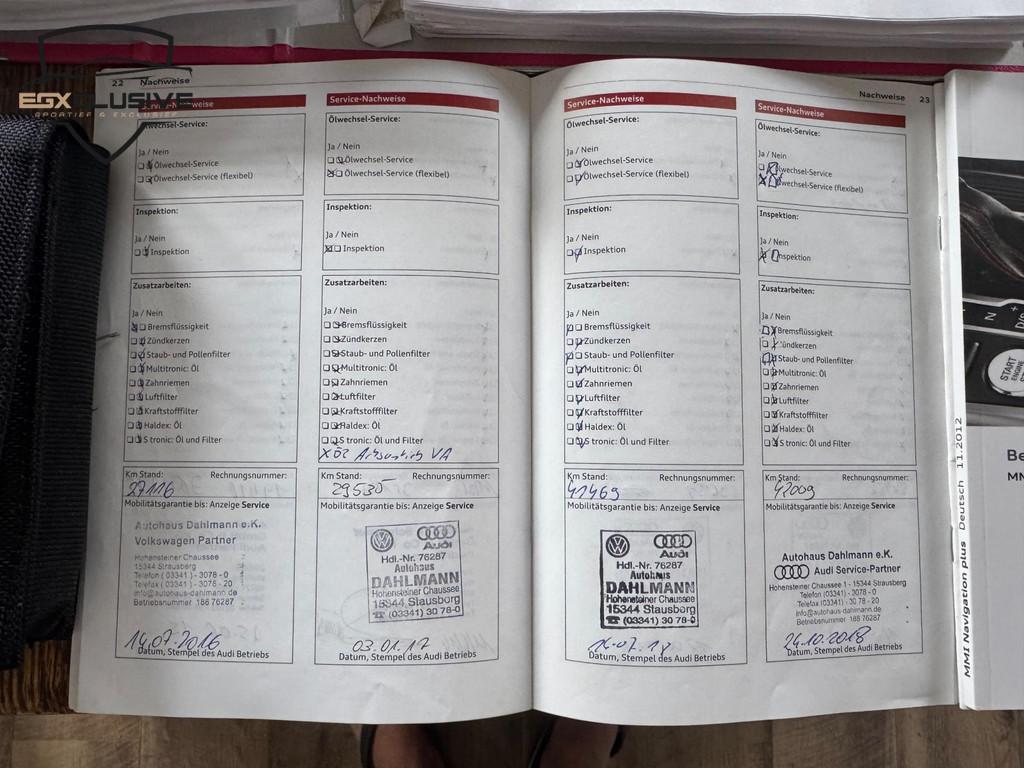 EGXCLUSIVE
SPORTIEF & EXCLUSIEF
22 Nachweise
Service-Nachweise
Ölwechsel-Service:
Ja / Nein
Ölwechsel-Service
Ölwechsel-Service (flexibel)
Inspektion:
Ja / Nein
Inspektion
Zusatzarbeiten:
Ja / Nein
Bremsflüssigkeit
Zündkerzen
Staub- und Pollenfilter
Multitronic: Öl
Zahnriemen
Luftfilter
Kraftstofffilter
Haldex: Öl
S tronic: Öl und Filter
Km Stand: Rechnungsnummer:
27116
Mobilitätsgarantie bis: Anzeige Service
Autohaus Dahlmann e.K.
Volkswagen Partner
Hohensteiner Chaussee
15344 Strausberg
Telefon (03341) - 3078 - 0
Telefax (03341) - 3078 - 20
info@autohaus-dahlmann.de
Betriebsnummer 188 76287
14.07.2016
Datum, Stempel des Audi Betriebs
Service-Nachweise
Ölwechsel-Service:
Ja / Nein
Ölwechsel-Service
Ölwechsel-Service (flexibel)
Inspektion:
Ja / Nein
Inspektion
Zusatzarbeiten:
Ja / Nein
Bremsflüssigkeit
Zündkerzen
Staub- und Pollenfilter
Multitronic: Öl
Zahnriemen
Luftfilter
Kraftstofffilter
Haldex: Öl
S tronic: Öl und Filter
VA
Km Stand: Rechnungsnummer:
29535
Mobilitätsgarantie bis: Anzeige Service
Audi
Hdl.-Nr. 76287
Autohaus
DAHLMANN
Hohensteiner Chaussee
15344 Stausborg
(03341) 30 78-0
03.01.17
Datum, Stempel des Audi Betriebs
Nachweise 23
Service-Nachweise
Ölwechsel-Service:
Ja / Nein
Ölwechsel-Service
Ölwechsel-Service (flexibel)
Inspektion:
Ja / Nein
Inspektion
Zusatzarbeiten:
Ja / Nein
Bremsflüssigkeit
Zündkerzen
Staub- und Pollenfilter
Multitronic: Öl
Zahnriemen
Luftfilter
Kraftstofffilter
Haldex: Öl
S tronic: Öl und Filter
Km Stand: Rechnungsnummer:
41469
Mobilitätsgarantie bis: Anzeige Service
Audi
Hdl.-Nr. 76287
Autohaus
DAHLMANN
Hohensteiner Chaussee
15344 Stausborg
(03341) 30 78-0
Datum, Stempel des Audi Betriebs
Service-Nachweise
Ölwechsel-Service:
Ja / Nein
Ölwechsel-Service
Ölwechsel-Service (flexibel)
Inspektion:
Ja / Nein
Inspektion
Zusatzarbeiten:
Ja / Nein
Bremsflüssigkeit
Zündkerzen
Staub- und Pollenfilter
Multitronic: Öl
Zahnriemen
Luftfilter
Kraftstofffilter
Haldex: Öl
S tronic: Öl und Filter
Km Stand: Rechnungsnummer:
42009
Mobilitätsgarantie bis: Anzeige Service
Autohaus Dahlmann e.K.
Audi Service-Partner
Hohensteiner Chaussee 1 - 15344 Strausberg
Telefon (03341) - 30 78 - 0
Telefax (03341) - 30 78 - 20
info@autohaus-dahlmann.de
Betriebsnummer 188 76287
24.10.2018
Datum, Stempel des Audi Betriebs
MMI Navigation plus Deutsch 11.2012
N
START
ENGINE
Be